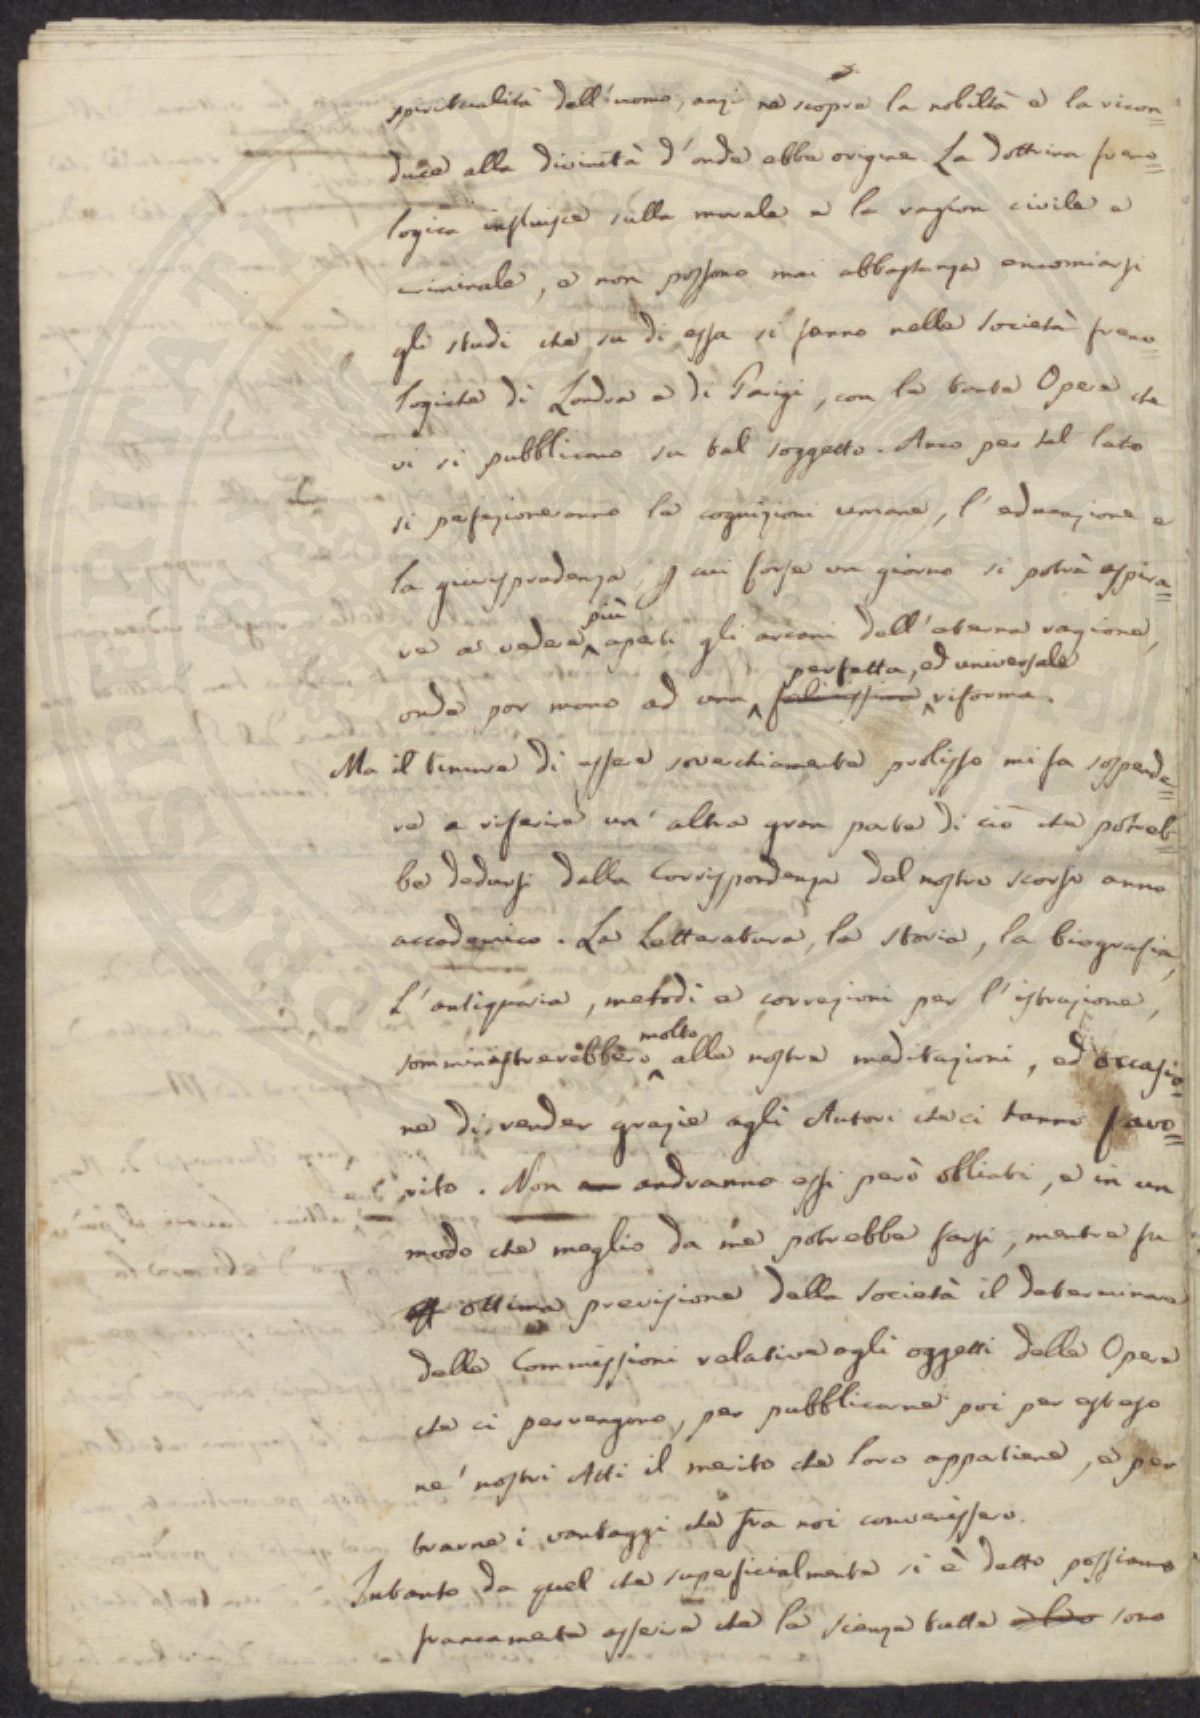 spiritualità dell'uomo, anzi ne scopre la nobiltà e la ricon=
duce alla divinità d'onde ebbe origine. La dottrina freno=
logica influisce sulla morale e la ragion civile e
criminale, e non possono mai abbastanza encomiarsi
gli studi che su di essa si fanno nelle società freno=
logiche di Londra e di Parigi, con le tante Opere che
vi si pubblicano su tal soggetto. Anco per tal lato
si perfezioneranno le cognizioni umane, l'educazione e
la giurisprudenza, cui forse un giorno si potrà aspira=
re a vedere più aperti gli arcani dell'eterna ragione,
onde por mano ad una perfetta, ed universale riforma.
Ma il timore di essere soverchiamente prolisso mi fa sospende=
re a riferire un'altra gran parte di ciò che potreb=
be dedursi dalla Corrispondenza del nostro scorso anno
accademico. La Letteratura, la storia, la biografia,
l'antiquaria, metodi e correzioni per l'istruzione,
somministrerebbero molto alle nostre meditazioni, ed occasio=
ne di render grazie agli Autori che ci hanno favo=
rito. Non andranno essi però obliati, e in un
modo che meglio da me potrebbe farsi, mentre fu
ottima previsione della società il determinare
delle Commissioni relative agli oggetti delle Opere
che ci pervengono, per pubblicarne poi per esteso
ne' nostri Atti il merito che loro appartiene, e per
trarne i vantaggi che fra noi convenissero.
Intanto da quel che superficialmente si è detto possiamo
francamente asserire che le scienze tutte sono